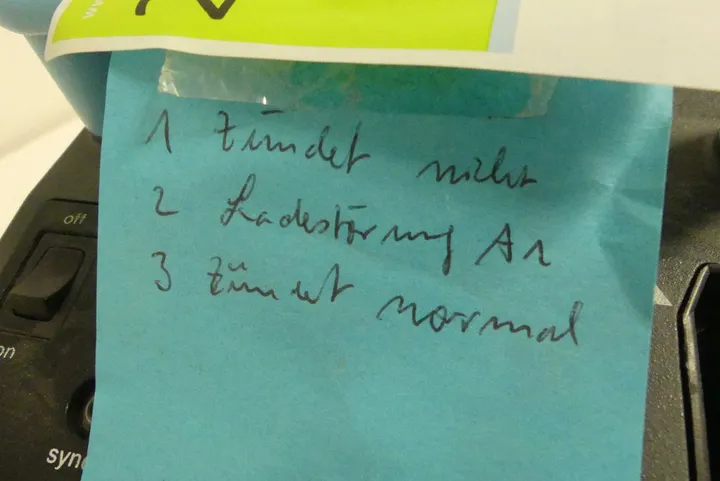 www.
2
1 Zündet nicht
2 Ladestörung A1
3 Zündet normal
off
on
sync